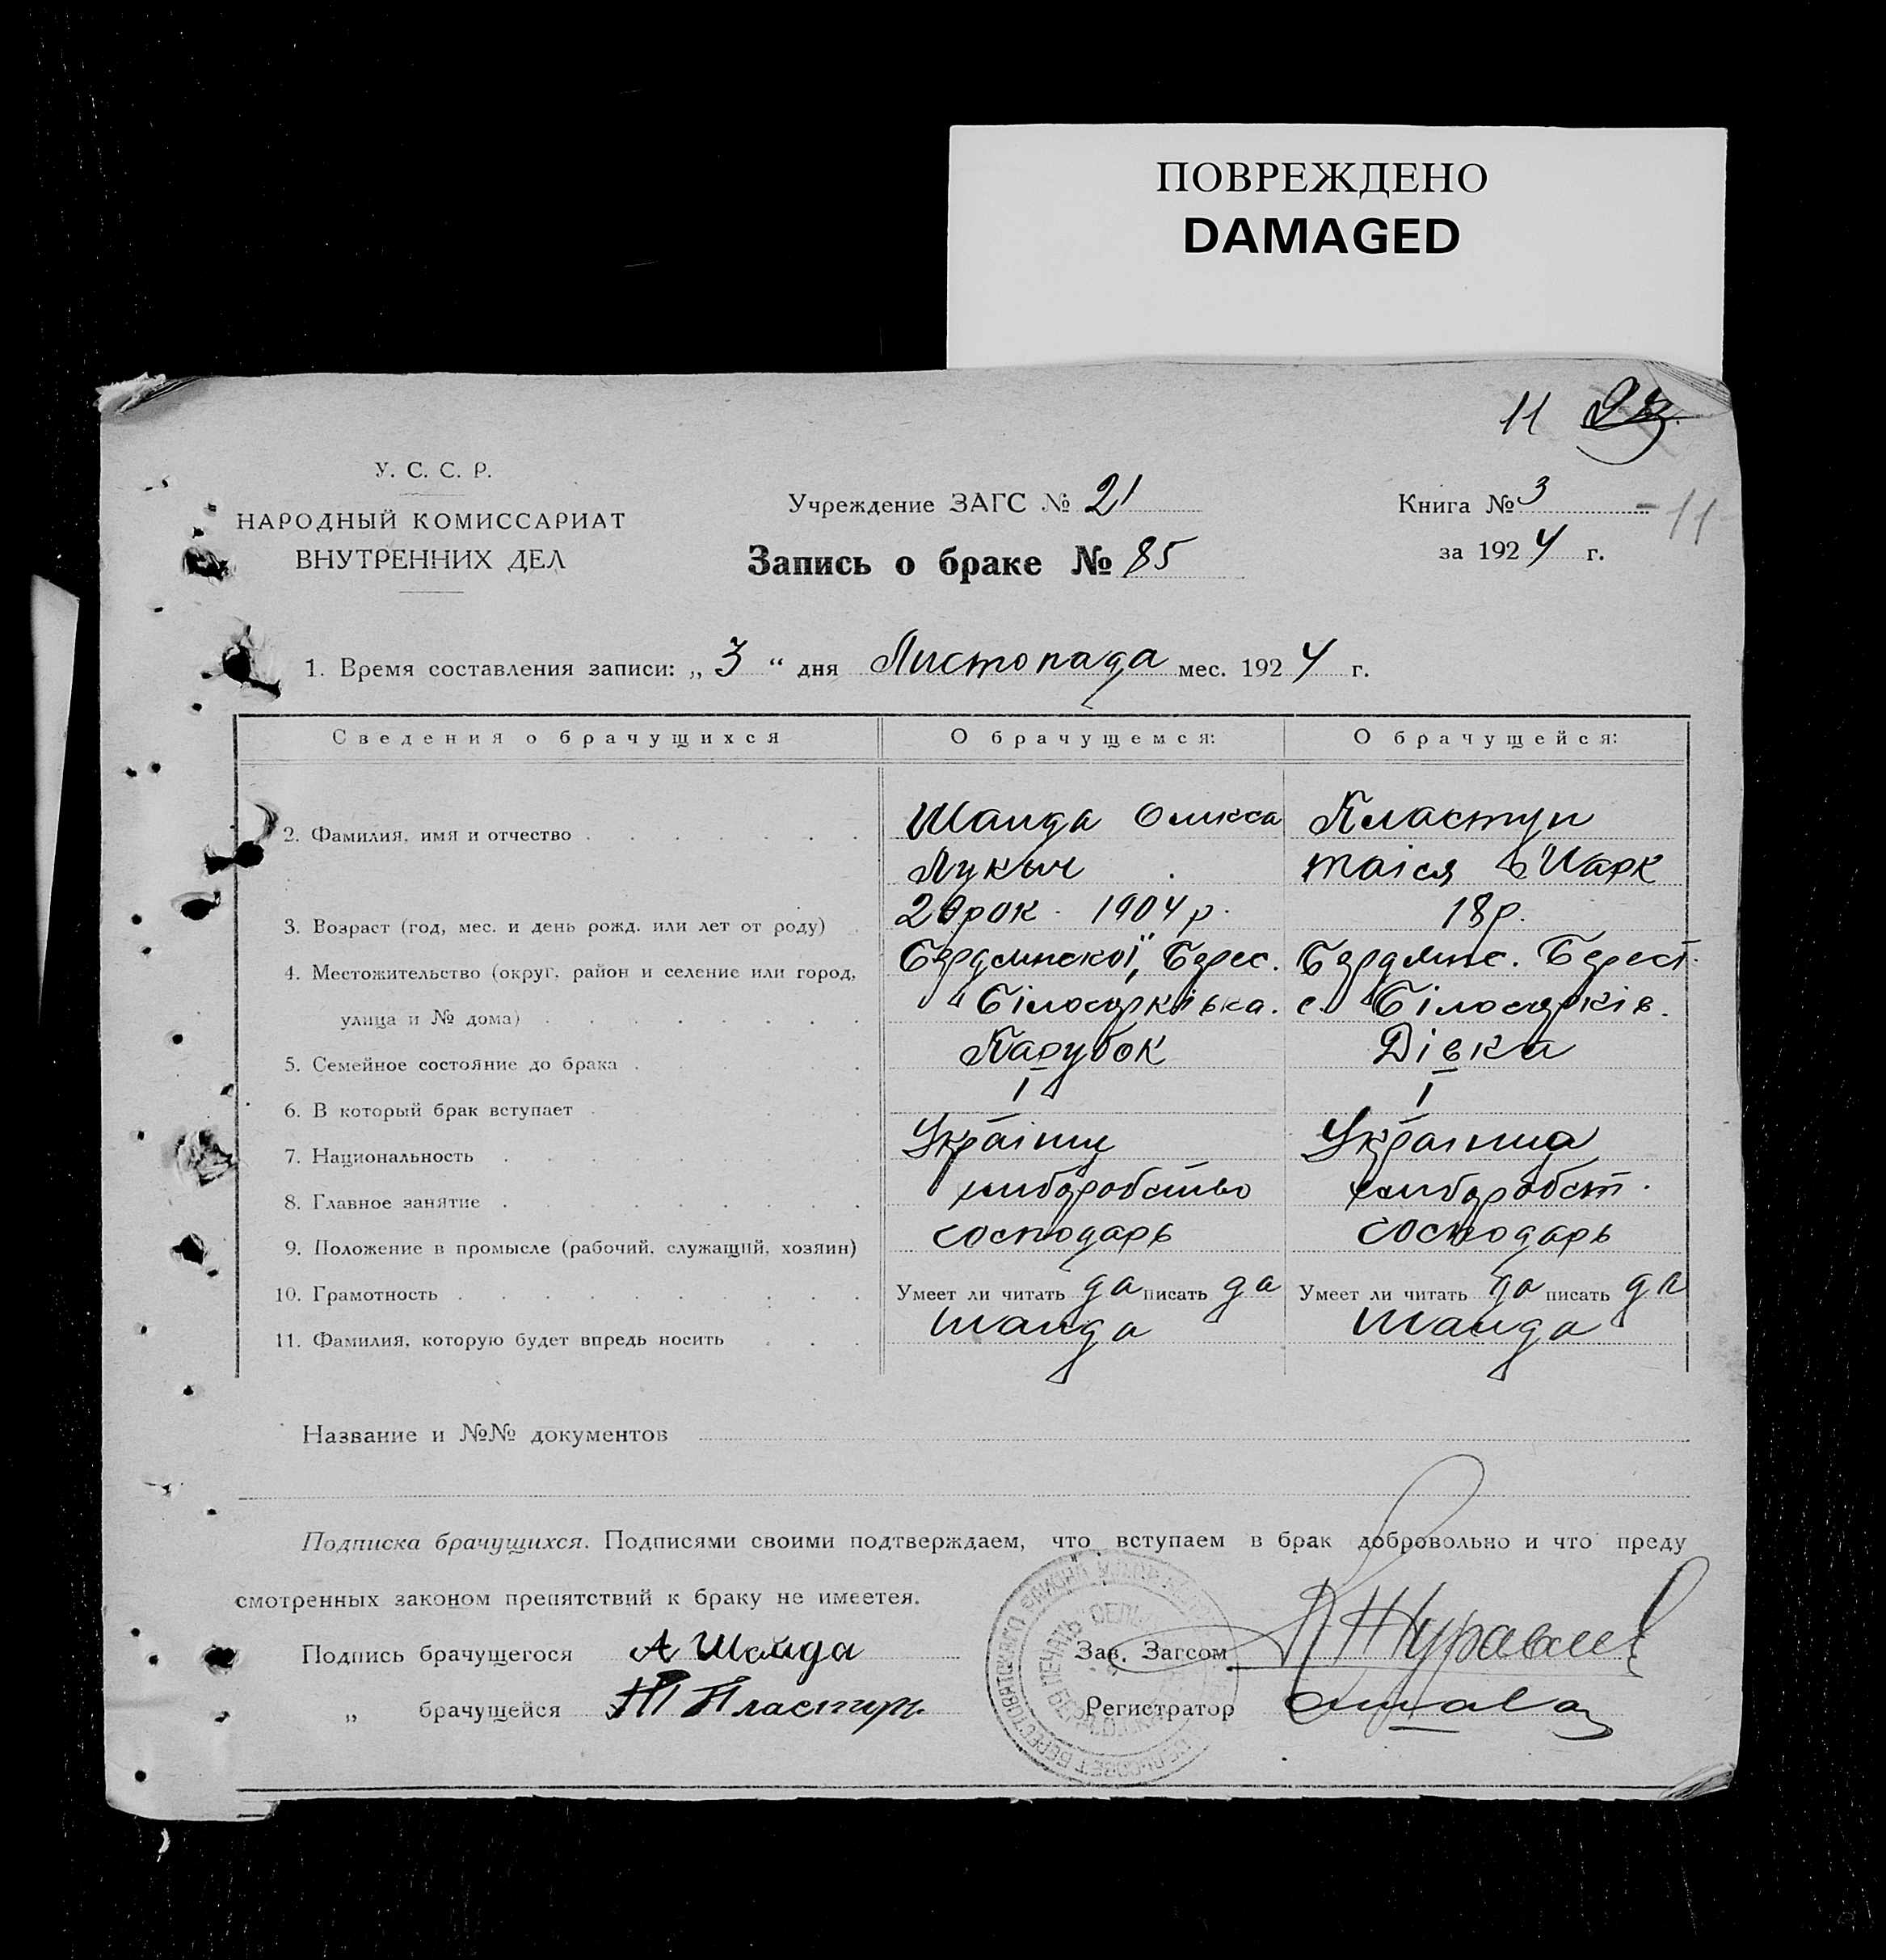 ПОВРЕЖДЕНО
DAMAGED
11
У. С. С. Р.
НАРОДНЫЙ КОМИССАРИАТ
ВНУТРЕННИХ ДЕЛ
Учреждение ЗАГС № 21
Запись о браке № 85
Книга № 3
- 11 -
за 1924 г.
1. Время составления записи: „ 3 “ дня Листопада мес. 1924 г.
Сведения о брачущихся О брачущемся: О брачущейся:
2. Фамилия, имя и отчество Шаида Оликса Пластун
Лукыч Таіся Марк
3. Возраст (год, мес. и день рожд. или лет от роду) 20 рок. 1904 р. 18 р.
4. Местожительство (округ, район и селение или город, Бердянскої, Берес. Бердянс. Берест.
улица и № дома) Білоцерківка. с. Білоцерків.
5. Семейное состояние до брака Парубок Дівка
6. В который брак вступает I I
7. Национальность Українц Українца
8. Главное занятие хлиборобство хлиборобст.
9. Положение в промысле (рабочий, служащий, хозяин) господарь господарь
10. Грамотность Умеет ли читать да писать да Умеет ли читать да писать да
11. Фамилия, которую будет впредь носить Шаида Шаида
Название и №№ документов
Подписка брачущихся. Подписями своими подтверждаем, что вступаем в брак добровольно и что преду
смотренных законом препятствий к браку не имеется.
Подпись брачущегося А Шаида Зав. Загсом Журавлев
„ брачущейся Т Пластун. Регистратор